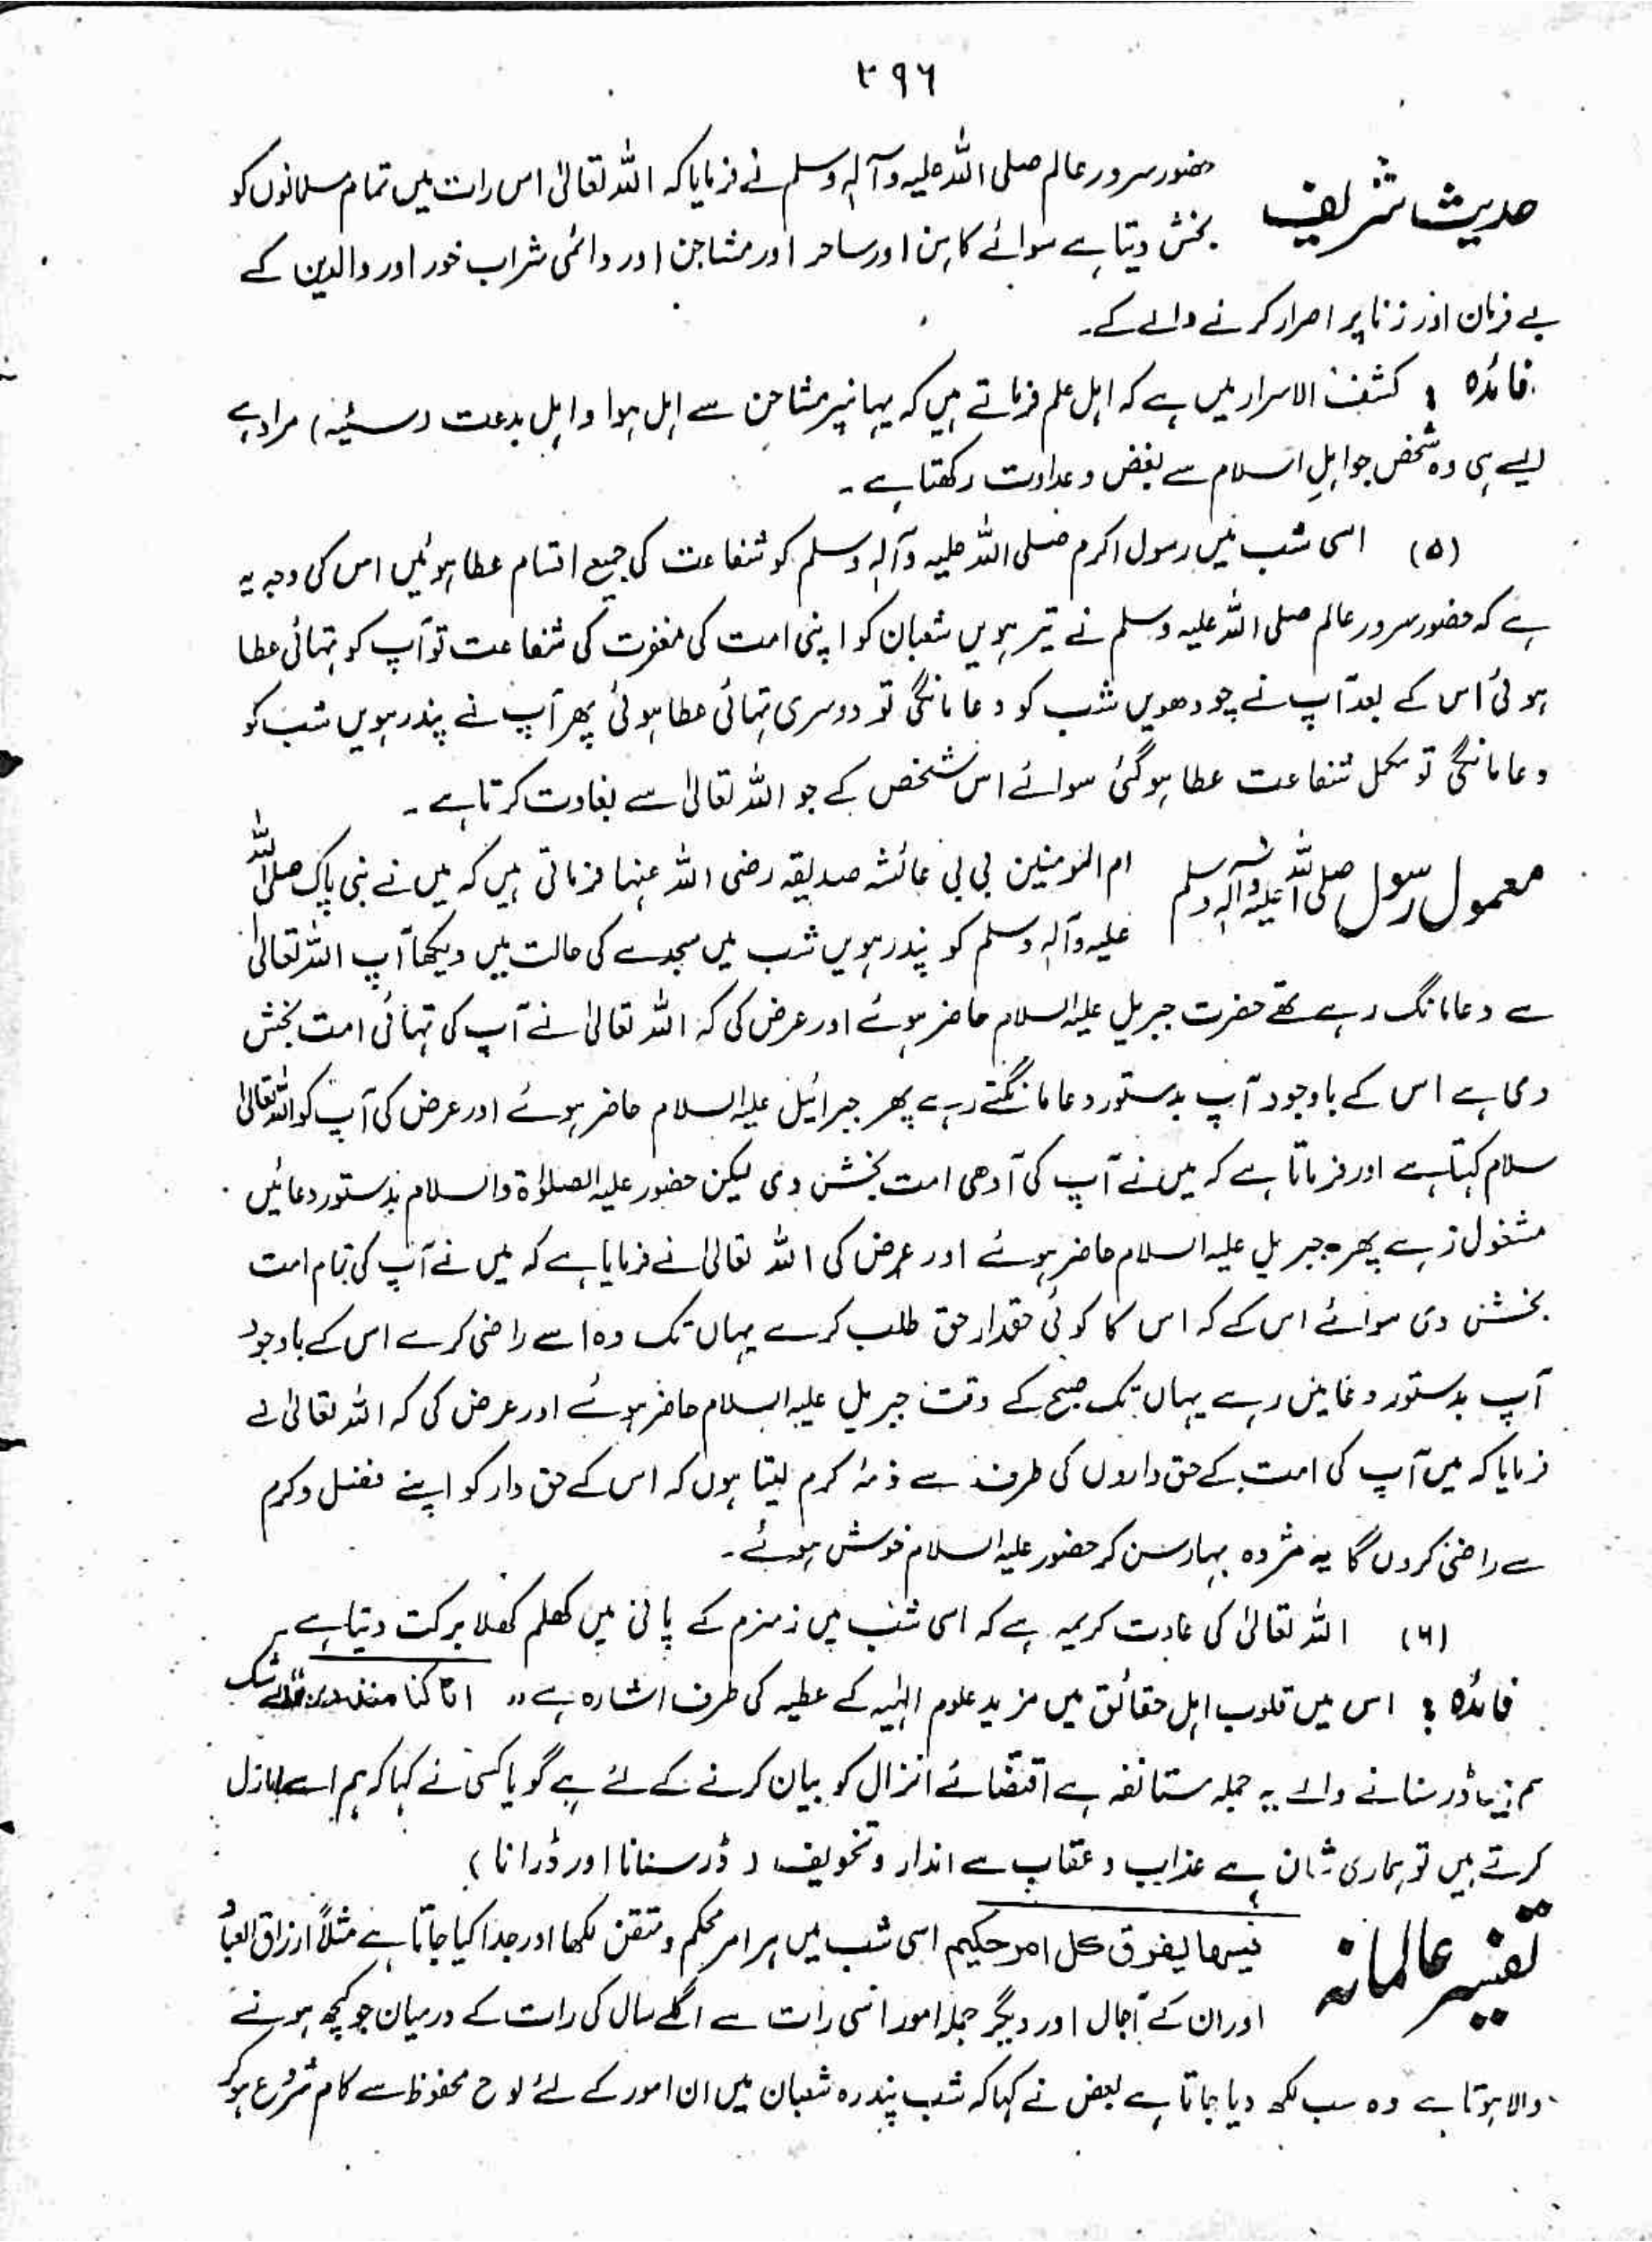 ۳۹۶
حدیث شریف حضور سرور عالم صلی اللہ علیہ وآلہٖ وسلم نے فرمایا کہ اللہ تعالیٰ اس رات میں تمام مسلمانوں کو
بخش دیتا ہے سوائے کاہن اور ساحر اور مشاجن اور دائمی شراب خور اور والدین کے
بے فرمان اور زنا پر اصرار کرنے والے کے۔
فائدہ : کشف الاسرار میں ہے کہ اہل علم فرماتے ہیں کہ یہانپر مشاحن سے اہل ہوا و اہل بدعت (سئیہ) مراد ہے
ایسے ہی وہ شخص جو اہلِ اسلام سے بغض و عداوت رکھتا ہے ۔
(۵) اسی شب میں رسول اکرم صلی اللہ علیہ وآلہٖ وسلم کو شفاعت کی جمیع اقسام عطا ہوئیں اس کی وجہ یہ
ہے کہ حضور سرور عالم صلی اللہ علیہ وسلم نے تیرہویں شعبان کو اپنی امت کی مغفرت کی شفاعت تو آپ کو تہائی عطا
ہوئی اس کے بعد آپ نے چودھویں شب کو دعا مانگی تو دوسری تہائی عطا ہوئی پھر آپ نے پندرہویں شب کو
دعا مانگی تو مکمل شفاعت عطا ہوگئی سوائے اس شخص کے جو اللہ تعالیٰ سے بغاوت کرتا ہے ۔
معمول رسول صلی اللہ علیہ وآلہ وسلم ام المومنین بی بی عائشہ صدیقہ رضی اللہ عنہا فرماتی ہیں کہ میں نے نبی پاک صلی اللہ
علیہ وآلہٖ وسلم کو پندرہویں شب میں سجدے کی حالت میں دیکھا آپ اللہ تعالیٰ
سے دعا مانگ رہے تھے حضرت جبریل علیہ السلام حاضر ہوئے اور عرض کی کہ اللہ تعالیٰ نے آپ کی تہائی امت بخش
دی ہے اس کے باوجود آپ بدستور دعا مانگتے رہے پھر جبرائیل علیہ السلام حاضر ہوئے اور عرض کی آپ کو اللہ تعالیٰ
سلام کہتا ہے اور فرماتا ہے کہ میں نے آپ کی آدھی امت بخش دی لیکن حضور علیہ الصلوٰۃ والسلام بدستور دعا میں
مشغول رہے پھر جبریل علیہ السلام حاضر ہوئے اور عرض کی اللہ تعالیٰ نے فرمایا ہے کہ میں نے آپ کی تمام امت
بخش دی سوائے اس کے کہ اس کا کوئی حقدار حق طلب کرے یہاں تک وہ اسے راضی کرے اس کے باوجود
آپ بدستور دعا میں رہے یہاں تک صبح کے وقت جبریل علیہ السلام حاضر ہوئے اور عرض کی کہ اللہ تعالیٰ نے
فرمایا کہ میں آپ کی امت کے حق داروں کی طرف سے ذمۂ کرم لیتا ہوں کہ اس کے حق دار کو اپنے فضل وکرم
سے راضی کردوں گا یہ مژدہ بہار سن کر حضور علیہ السلام خوش ہوئے ۔
(۶) اللہ تعالیٰ کی عادت کریمہ ہے کہ اسی شب میں زمزم کے پانی میں کھلم کھلا برکت دیتا ہے
فائدہ : اس میں قلوب اہل حقائق میں مزید علوم الٰہیہ کے عطیہ کی طرف اشارہ ہے ،، انا کنا منذرین بے شک
ہم ہیں ڈر سنانے والے یہ جملہ مستانفہ ہے اقتضائے انزال کو بیان کرنے کے لئے ہے گویا کسی نے کہا کہ ہم اسے نازل
کرتے ہیں تو ہماری شان ہے عذاب و عقاب سے انذار و تخویف (ڈر سنانا اور ڈرانا)
تفسیر عالمانہ فیہا یفرق کل امر حکیم اسی شب میں ہر امر محکم و متقن لکھا اور جدا کیا جاتا ہے مثلاً ارزاق العباد
اور ان کے آجال اور دیگر جملہ امور اسی رات سے اگلے سال کی رات کے درمیان جو کچھ ہونے
والا ہوتا ہے وہ سب لکھ دیا جاتا ہے بعض نے کہا کہ شب پندرہ شعبان میں ان امور کے لئے لوح محفوظ سے کام شروع ہوکر